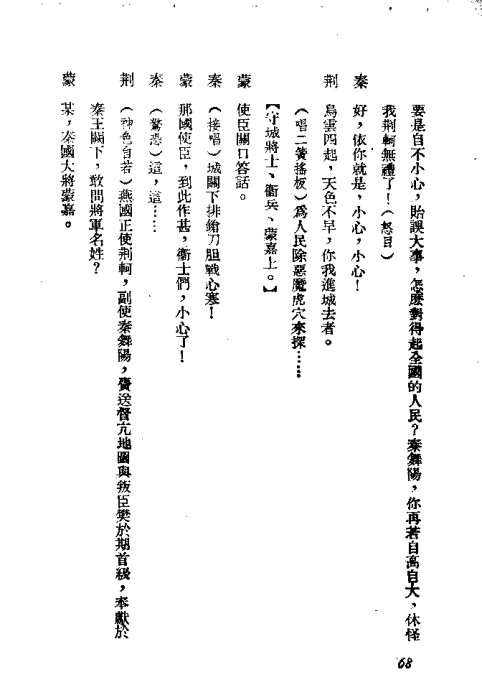 要是自不小心，貽誤大事，怎麽對得起全國的人民？秦舞陽，你再若自高自大，休怪
我荆軻無禮了！（怒目）
秦　好，依你就是，小心，小心！
荆　烏雲四起，天色不早，你我進城去者。
（唱二簧搖板）爲人民除惡魔虎穴來探……
【守城將士、衞兵、蒙嘉上。】
蒙　使臣關口答話。
秦　（接唱）城闕下排鎗刀胆戰心寒！
蒙　那國使臣，到此作甚，衞士們，小心了！
秦　（驚恐）這，這……
荆　（神色自若）燕國正使荆軻，副使秦舞陽，賫送督亢地圖與叛臣樊於期首級，奉獻於
秦王闕下，敢問將軍名姓？
蒙　某，秦國大將蒙嘉。
68